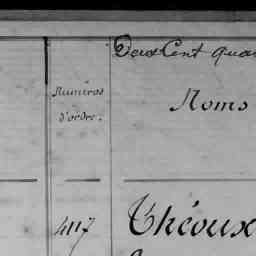 Deux Cent quar
Numéros
d'ordre.
Noms
4117
Théoux